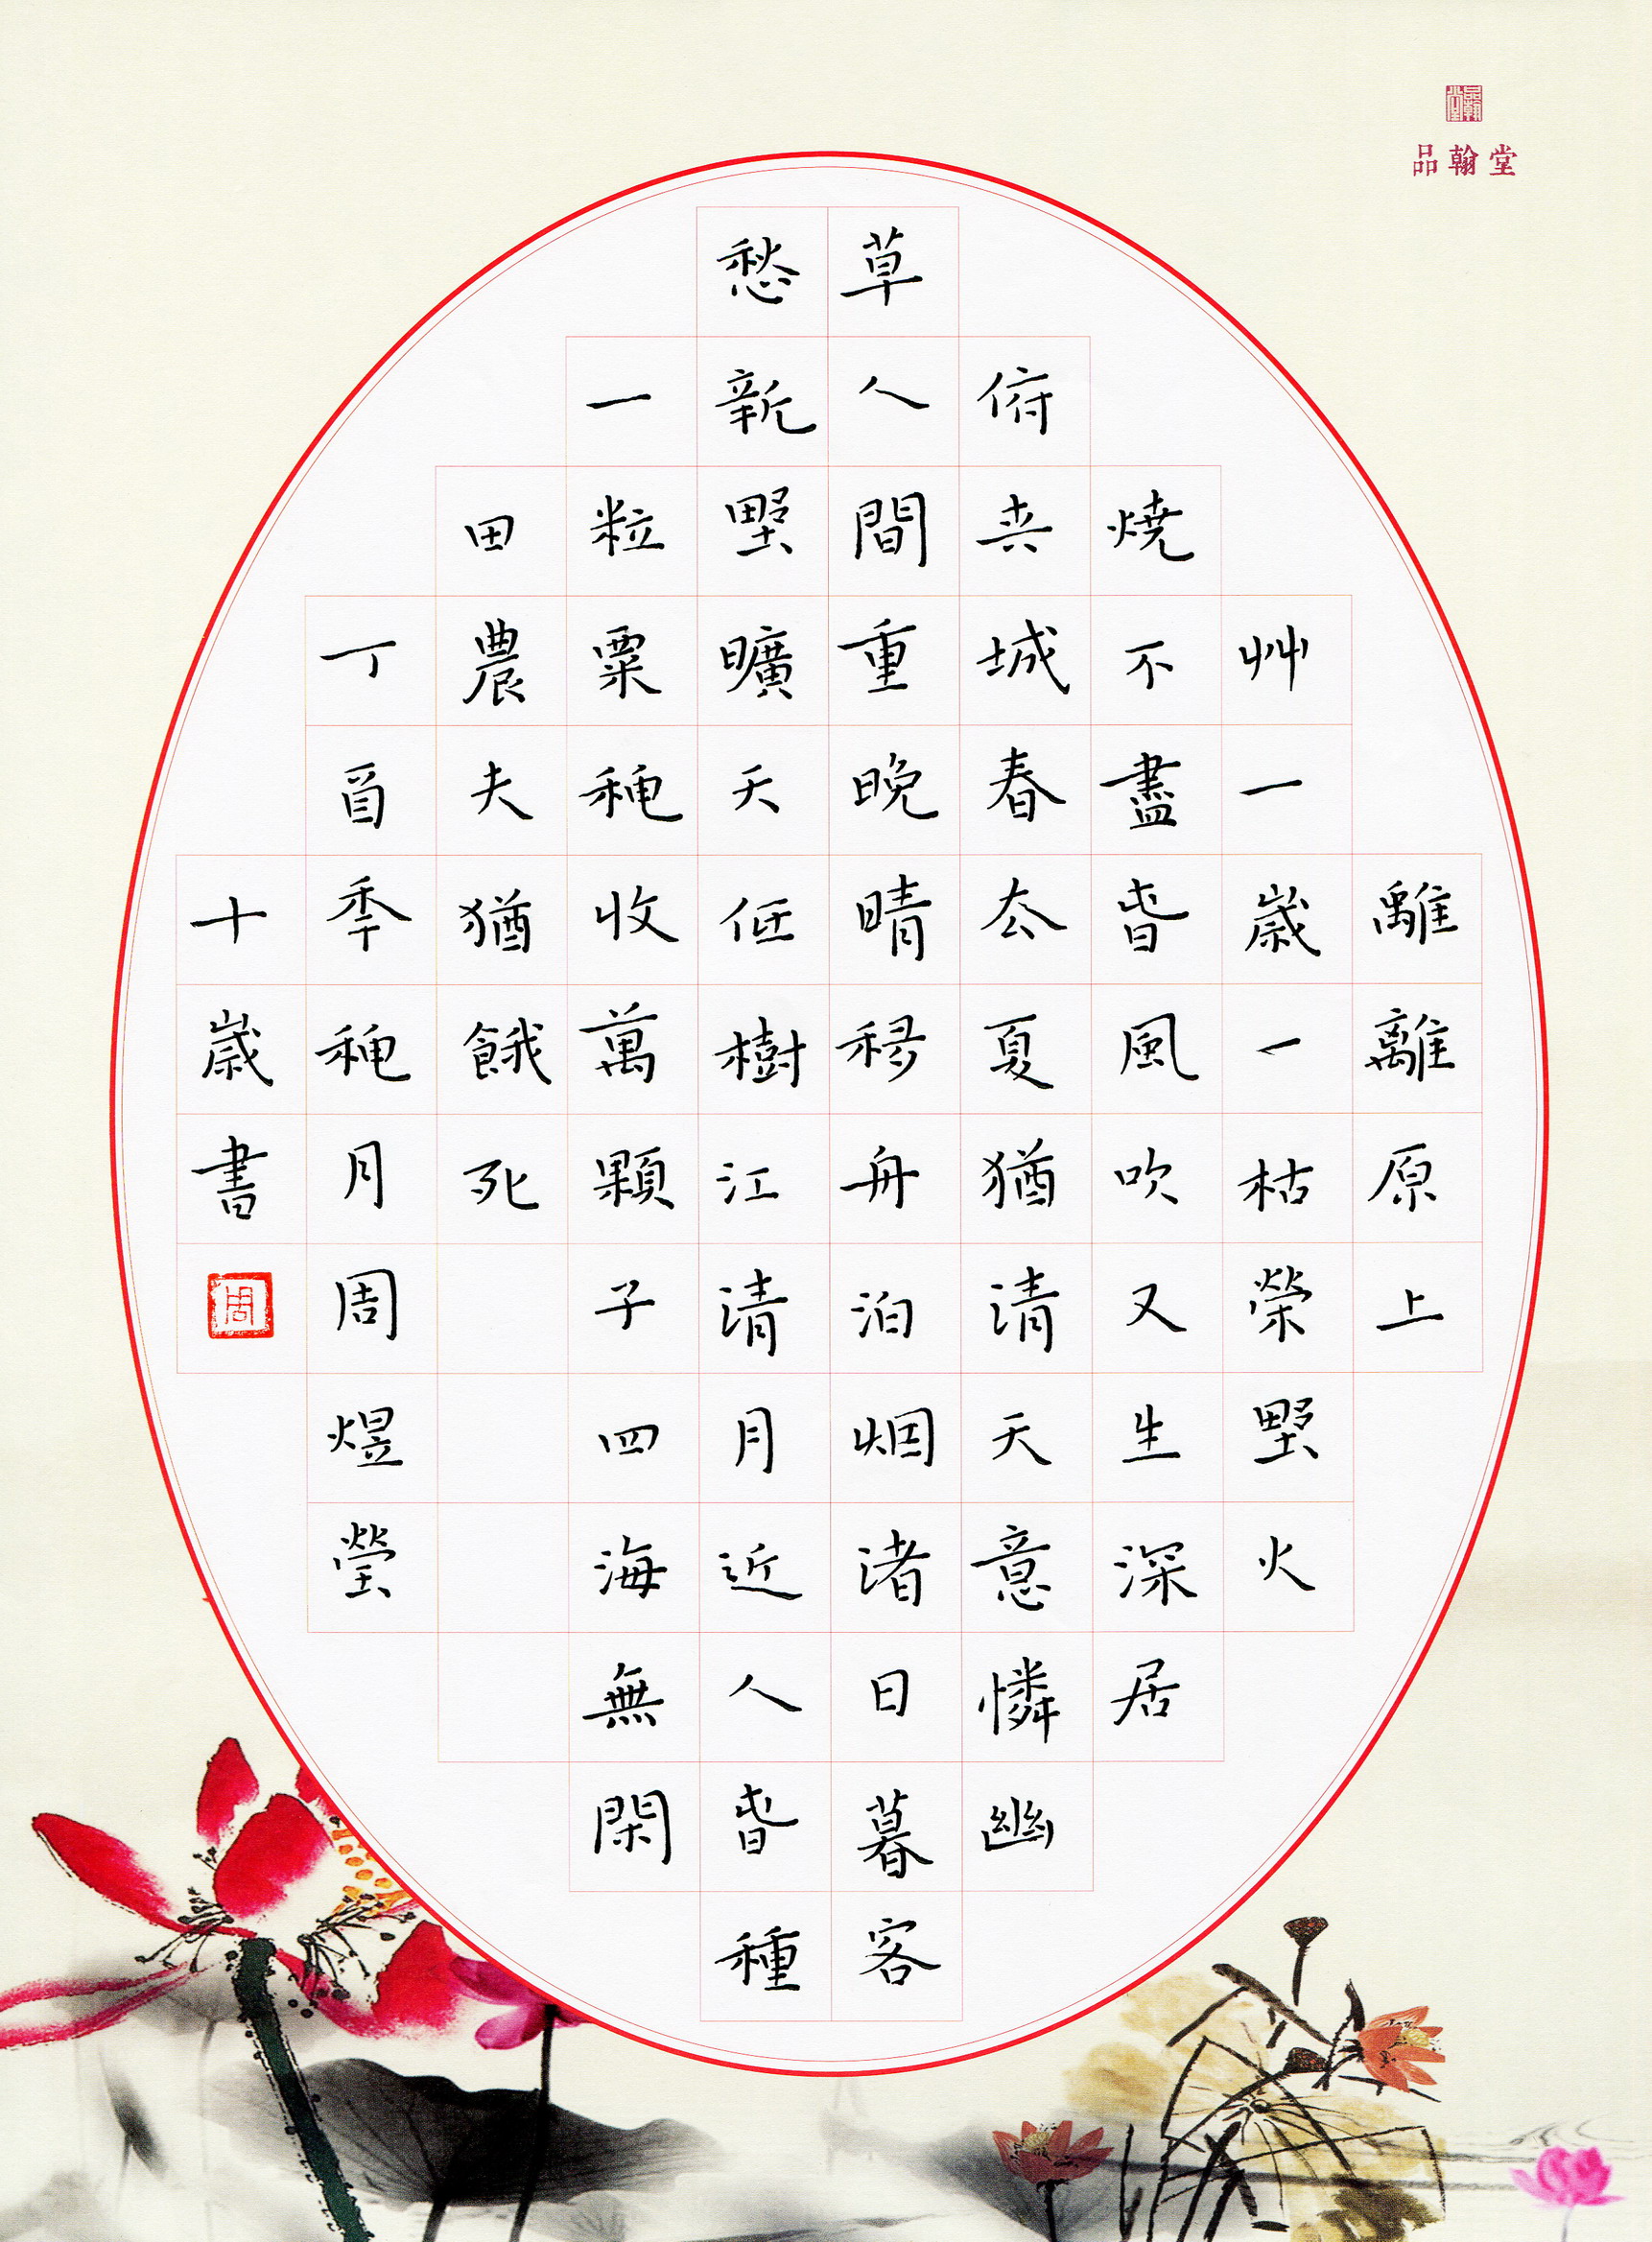 品翰堂
品翰堂
離離原上
艸一歲一枯榮野火
燒不盡旾風吹又生深居
俯夾城春去夏猶清天意憐幽
草人間重晚晴移舟泊烟渚日暮客
愁新野曠天低樹江清月近人旾種
一粒粟秋收萬顆子四海無閑
田農夫猶餓死
丁酉季秋月周煜瑩
十歲書
周